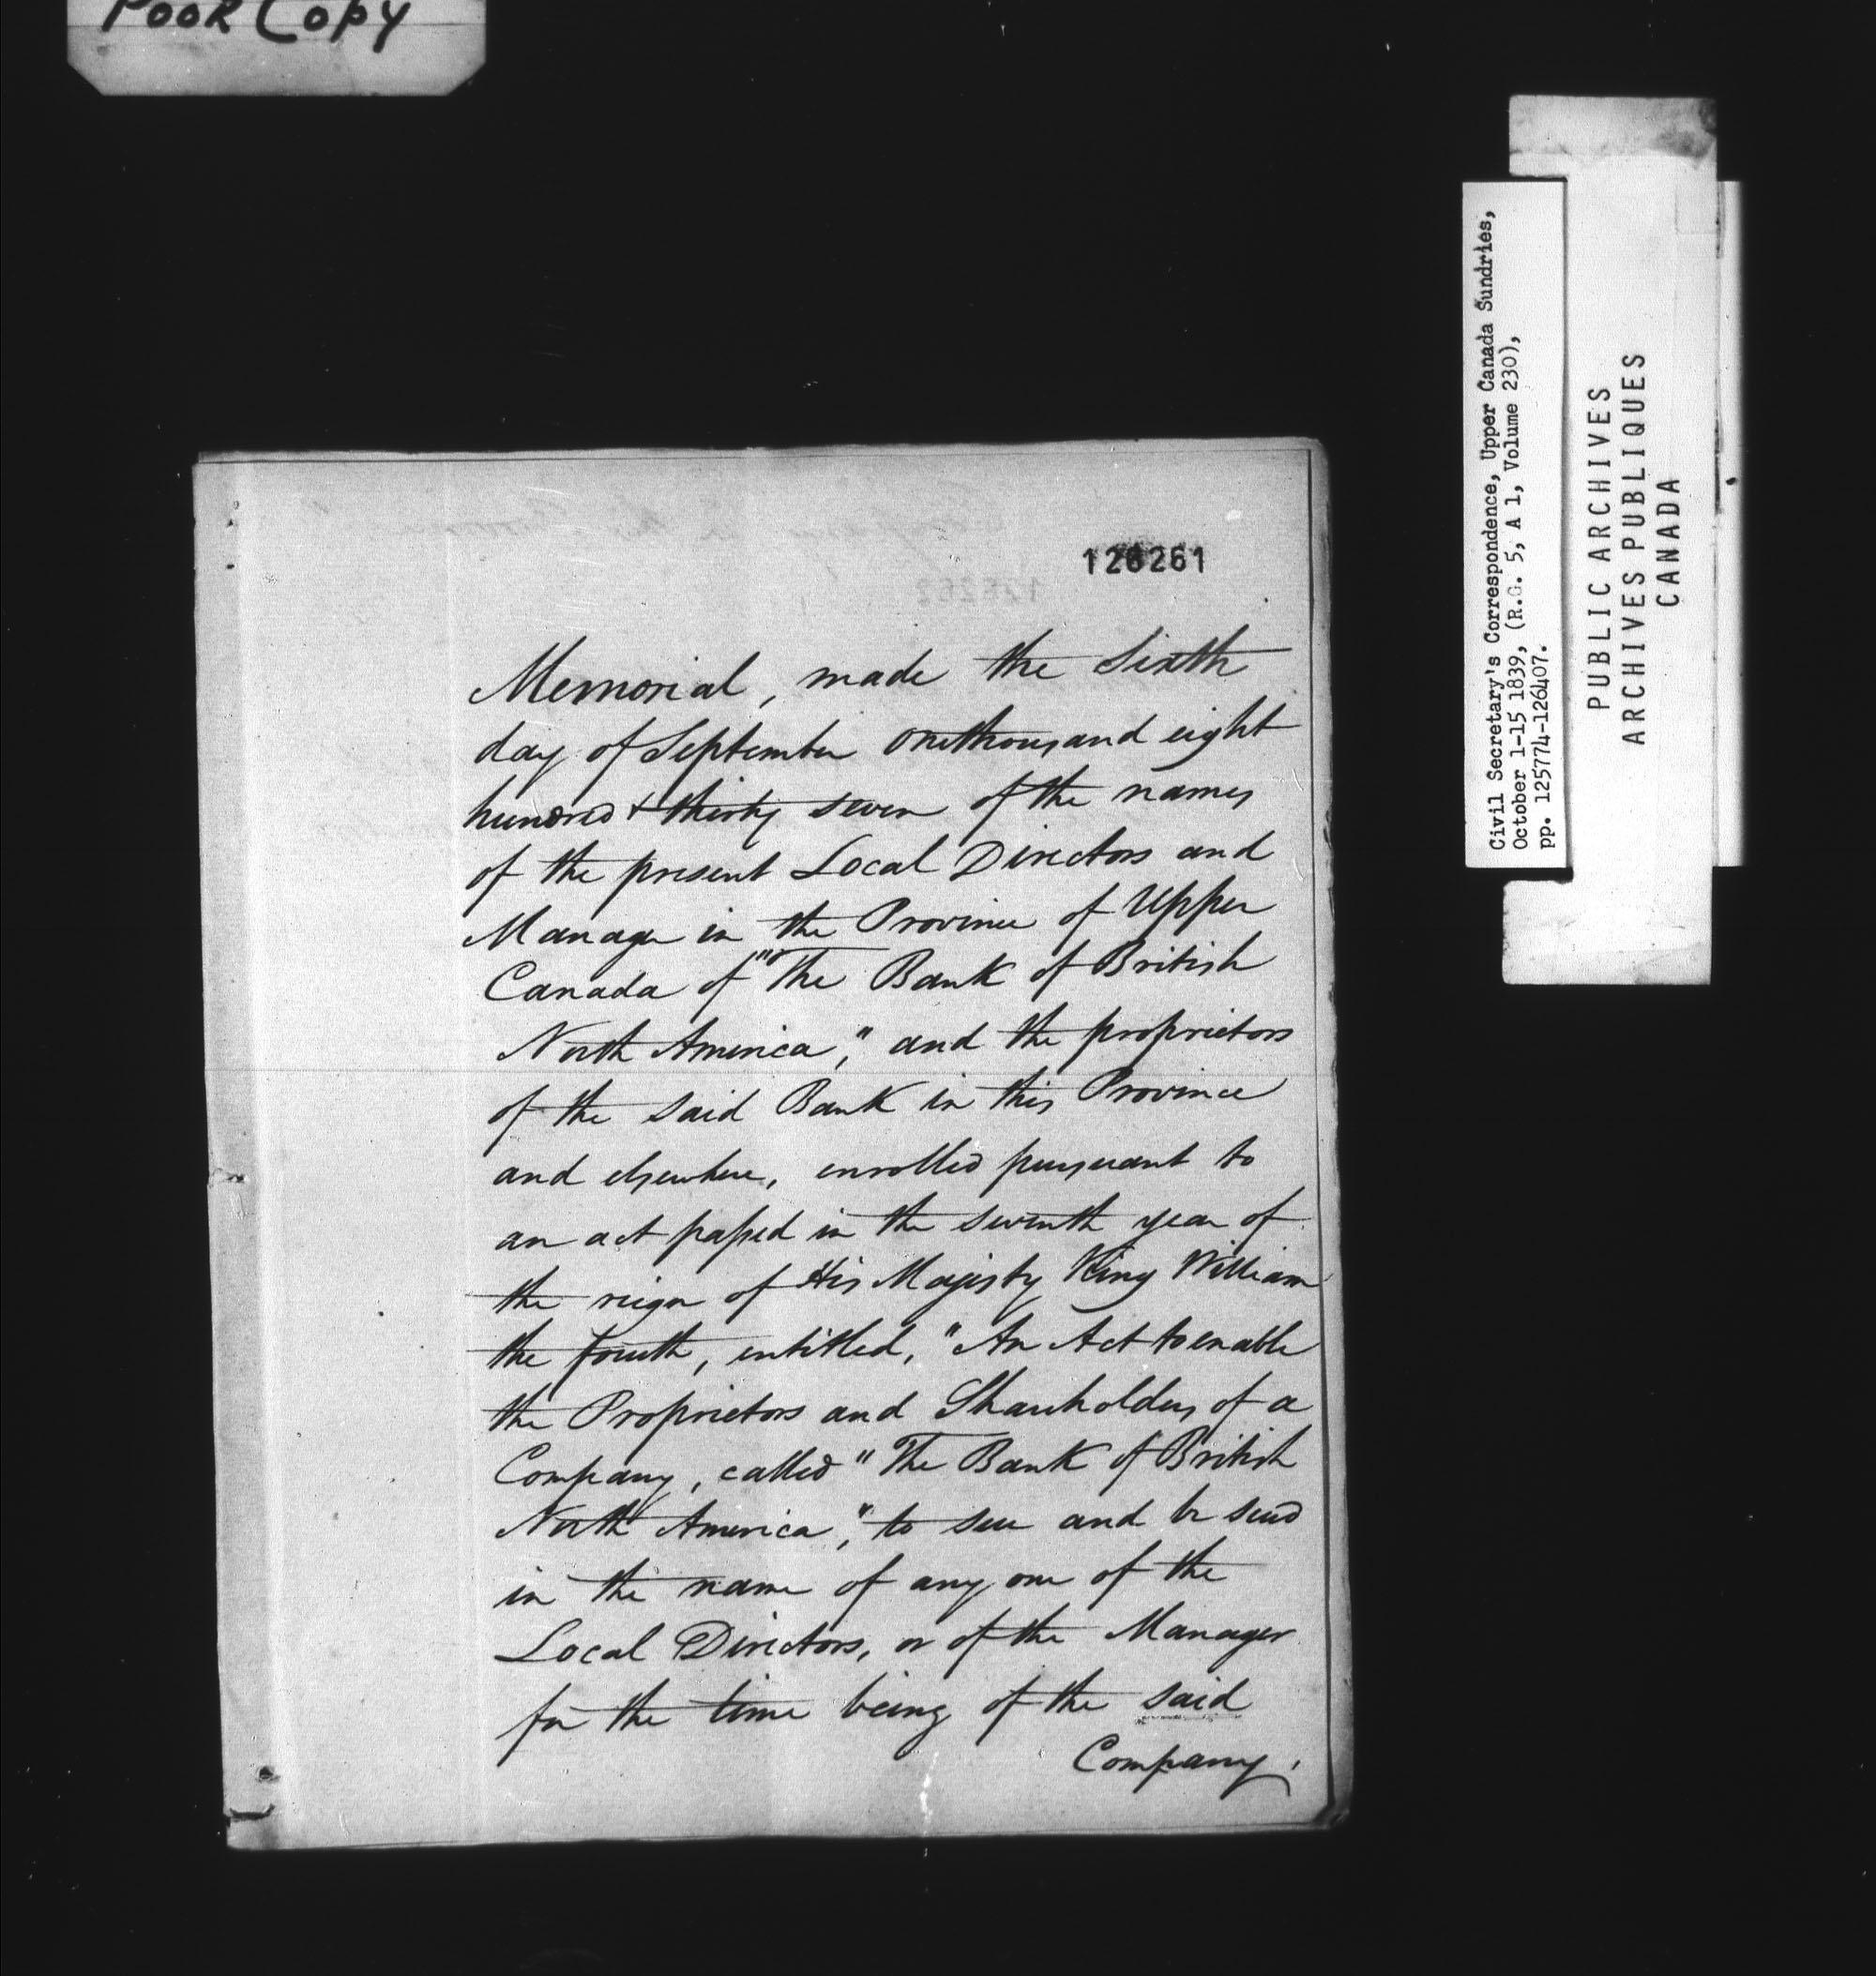 Poor Copy
126261
Memorial, made the Sixth
day of September one thousand eight
hundred & thirty seven of the names
of the present Local Directors and
Manager in the Province of Upper
Canada of "The Bank of British
North America," and the proprietors
of the said Bank in this Province
and elsewhere, enrolled pursuant to
an act passed in the seventh year of
the reign of His Majesty King William
the fourth, entitled, "An Act to enable
the Proprietors and Shareholders of a
Company, called "The Bank of British
North America," to sue and be sued
in the name of any one of the
Local Directors, or of the Manager
for the time being of the said
Company,
Civil Secretary's Correspondence, Upper Canada Sundries,
October 1-15 1839, (R.G. 5, A 1, Volume 230),
pp. 125774-126407.
PUBLIC ARCHIVES
ARCHIVES PUBLIQUES
CANADA